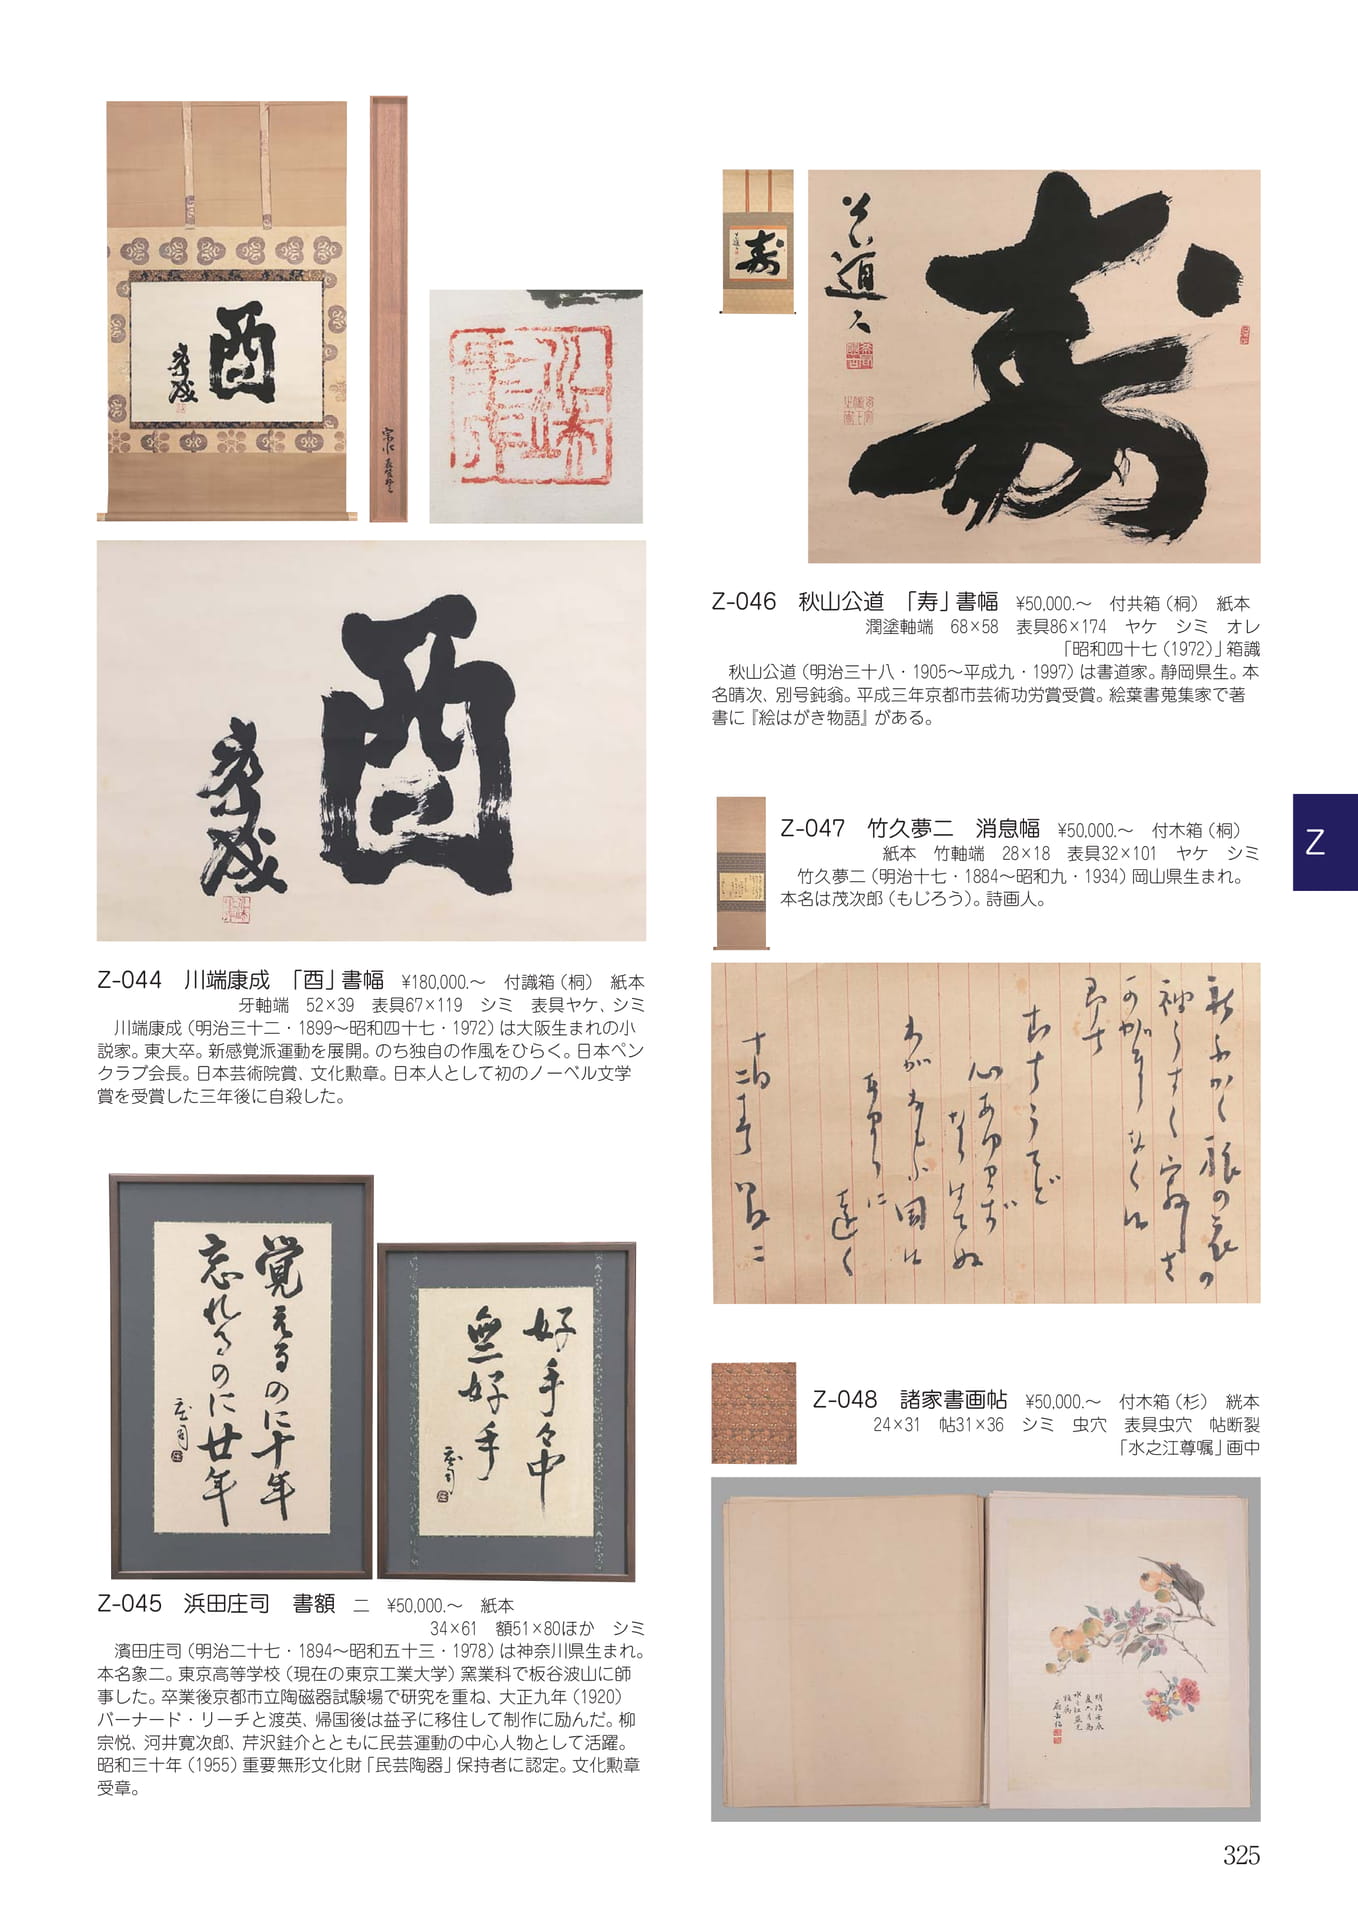 酉
康成
Z-044　川端康成　「酉」書幅　¥180,000.～　付識箱（桐）　紙本
牙軸端　52×39　表具67×119　シミ　表具ヤケ、シミ
川端康成（明治三十二・1899～昭和四十七・1972）は大阪生まれの小
説家。東大卒。新感覚派運動を展開。のち独自の作風をひらく。日本ペン
クラブ会長。日本芸術院賞、文化勲章。日本人として初のノーベル文学
賞を受賞した三年後に自殺した。
覚えるのに十年
忘れるのに廿年
庄司
好手々中
無好手
庄司
Z-045　浜田庄司　書額　二　¥50,000.～　紙本
34×61　額51×80ほか　シミ
濱田庄司（明治二十七・1894～昭和五十三・1978）は神奈川県生まれ。
本名象二。東京高等学校（現在の東京工業大学）窯業科で板谷波山に師
事した。卒業後京都市立陶磁器試験場で研究を重ね、大正九年（1920）
バーナード・リーチと渡英、帰国後は益子に移住して制作に励んだ。柳
宗悦、河井寛次郎、芹沢銈介とともに民芸運動の中心人物として活躍。
昭和三十年（1955）重要無形文化財「民芸陶器」保持者に認定。文化勲章
受章。
寿
公道人
Z-046　秋山公道　「寿」書幅　¥50,000.～　付共箱（桐）　紙本
潤塗軸端　68×58　表具86×174　ヤケ　シミ　オレ
「昭和四十七（1972）」箱識
秋山公道（明治三十八・1905～平成九・1997）は書道家。静岡県生。本
名晴次、別号鈍翁。平成三年京都市芸術功労賞受賞。絵葉書蒐集家で著
書に『絵はがき物語』がある。
Z-047　竹久夢二　消息幅　¥50,000.～　付木箱（桐）
紙本　竹軸端　28×18　表具32×101　ヤケ　シミ
竹久夢二（明治十七・1884～昭和九・1934）岡山県生まれ。
本名は茂次郎（もじろう）。詩画人。
Z-048　諸家書画帖　¥50,000.～　付木箱（杉）　絖本
24×31　帖31×36　シミ　虫穴　表具虫穴　帖断裂
「水之江尊嘱」画中
Z
325